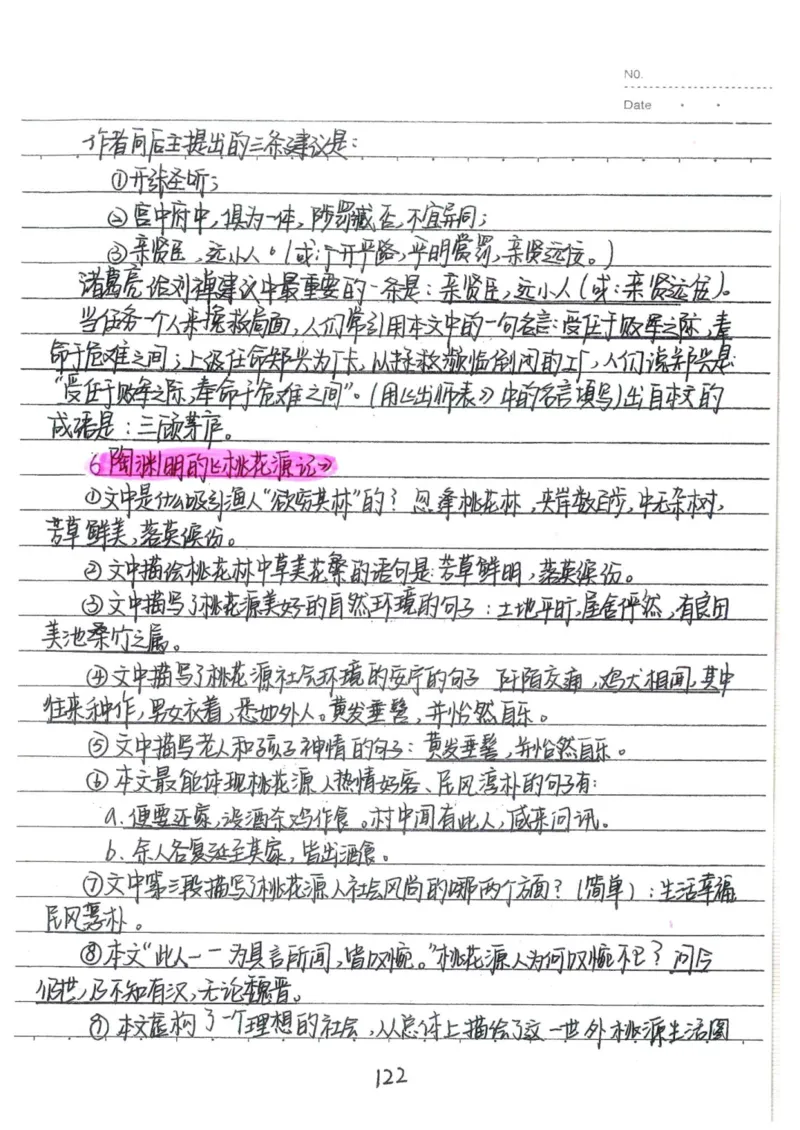 NO.
Date
作者向后主提出的三条建议是:
①开张圣听;
②宫中府中,俱为一体,陟罚臧否,不宜异同;
③亲贤臣,远小人。(或:广开言路,平明赏罚,亲贤远佞。)
诸葛亮给刘禅建议中最重要的一条是:亲贤臣,远小人(或:亲贤远佞)。
当任务一个人来挽救局面,人们常引用本文中的一句名言:受任于败军之际,奉
命于危难之间;上级任命郑兴为厂长,以拯救濒临倒闭的工厂,人们说郑兴是
“受任于败军之际,奉命于危难之间”。(用《出师表》中的名言填写)出自本文的
成语是:三顾茅庐。
6 陶渊明的《桃花源记》
①文中是什么吸引渔人“欲穷其林”的?忽逢桃花林,夹岸数百步,中无杂树,
芳草鲜美,落英缤纷。
②文中描绘桃花林中草美花繁的语句是:芳草鲜明,落英缤纷。
③文中描写了桃花源美好的自然环境的句子:土地平旷,屋舍俨然,有良田
美池桑竹之属。
④文中描写了桃花源社会环境的安宁的句子 阡陌交通,鸡犬相闻,其中
往来种作,男女衣着,悉如外人。黄发垂髫,并怡然自乐。
⑤文中描写老人和孩子神情的句子:黄发垂髫,并怡然自乐。
⑥本文最能体现桃花源人热情好客、民风淳朴的句子有:
a.便要还家,设酒杀鸡作食。村中闻有此人,咸来问讯。
b.余人各复延至其家,皆出酒食。
⑦文中第三段描写了桃花源人社会风尚的哪两个方面?(简单):生活幸福
民风淳朴。
⑧本文“此人一一为具言所闻,皆叹惋。”桃花源人为何叹惋不已?问今
何世,乃不知有汉,无论魏晋。
⑨本文虚构了一个理想的社会,从总体上描绘了这一世外桃源生活图
122